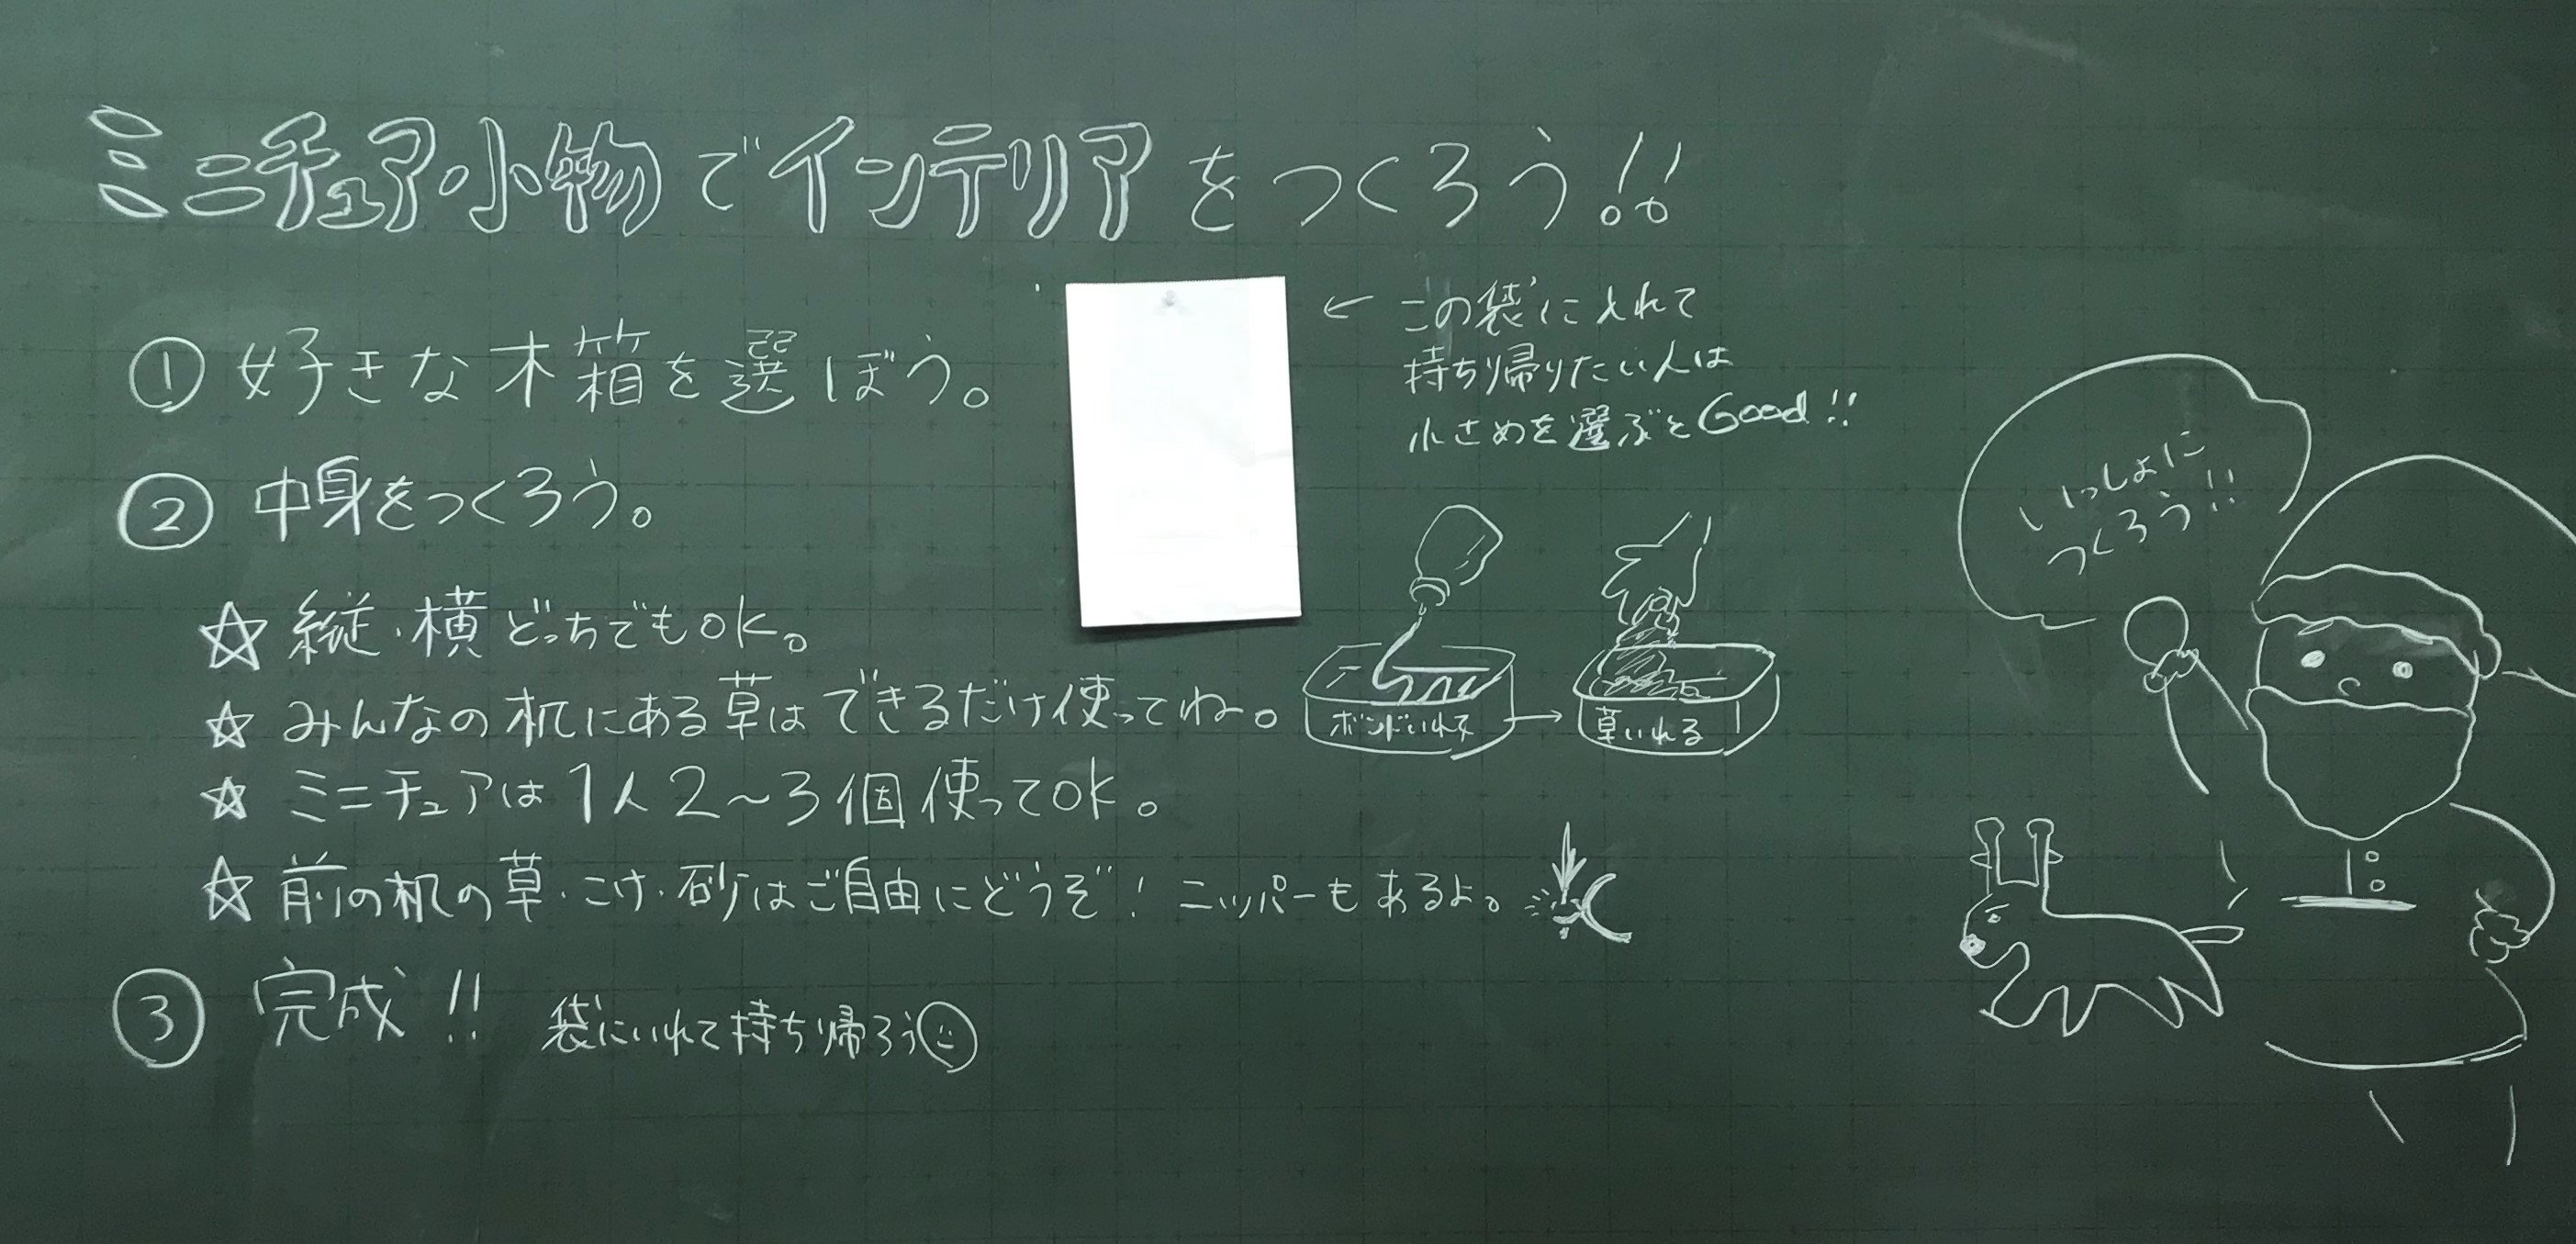 ミニチュア小物でインテリアをつくろう!!
① 好きな木箱を選ぼう。
← この袋に入れて
持ち帰りたい人は
小さめを選ぶとGood!!
② 中身をつくろう。
☆ 縦・横どっちでもOK。
☆ みんなの机にある草はできるだけ使ってね。
☆ ミニチュアは1人2〜3個使ってOK。
☆ 前の机の草・こけ・砂はご自由にどうぞ! ニッパーもあるよ。
ボンドいれて → 草いれる
③ 完成!! 袋にいれて持ち帰ろう
いっしょに
つくろう!!